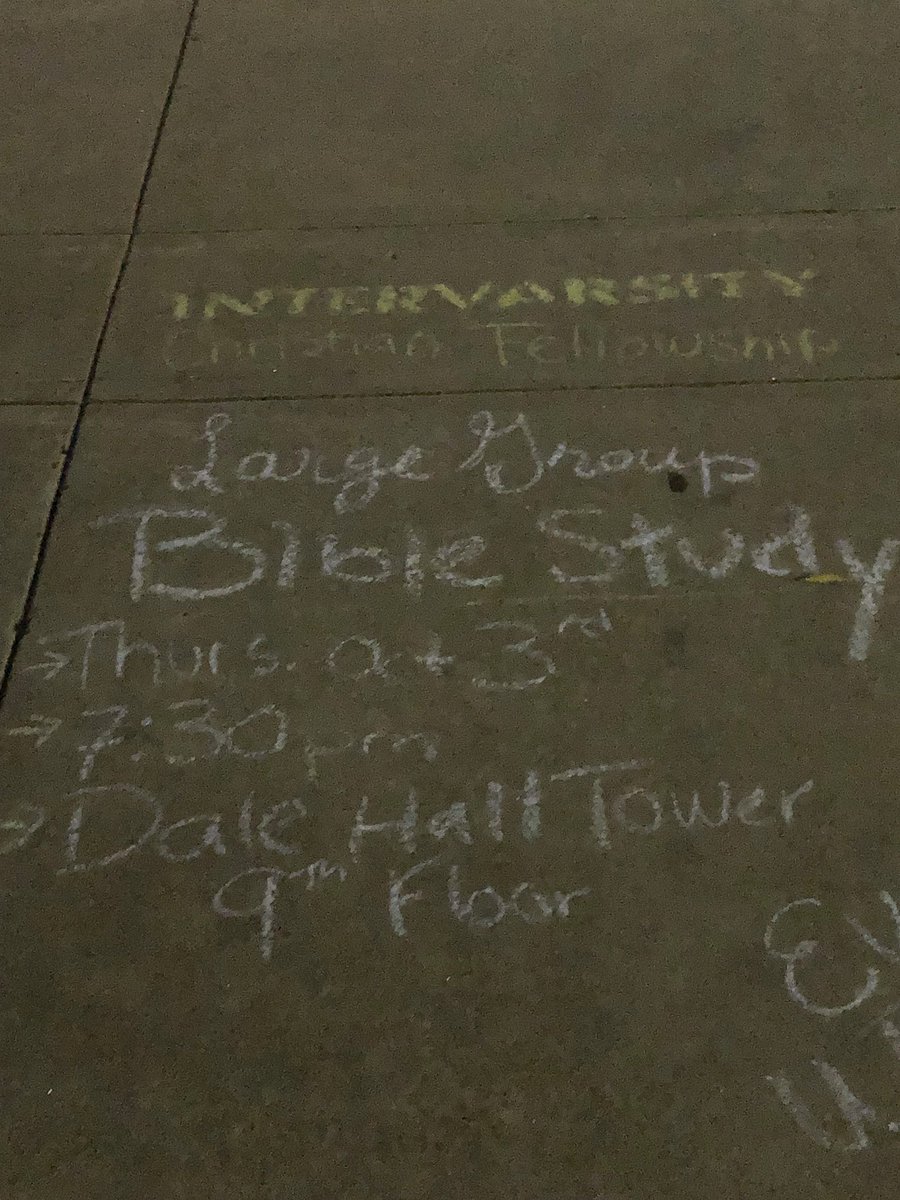 INTERVARSITY
Christian Fellowship
Large Group
Bible Study
→Thurs. Oct 3rd
→7:30pm
→Dale Hall Tower
9th Floor